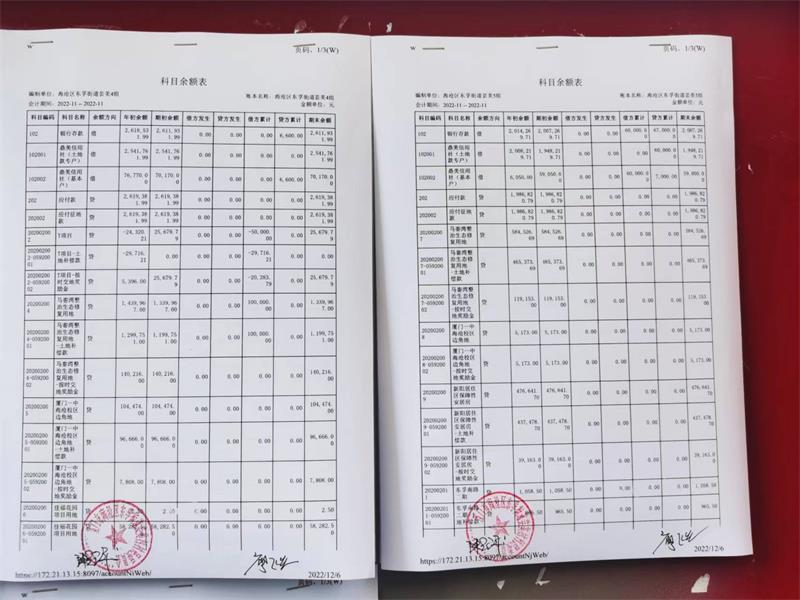 W 页码, 1/3(W)
科目余额表
编制单位: 海沧区东孚街道芸美4组 账本名称: 海沧区东孚街道芸美4组
会计期间: 2022-11--2022-11 金额单位: 元
科目编码 科目名称 余额方向 年初余额 期初余额 借方发生 贷方发生 借方累计 贷方累计 期末余额
102 银行存款 借 2,618,531.99 2,611,931.99 0.00 0.00 0.00 6,600.00 2,611,931.99
102001 鼎美信用社(土地款专户) 借 2,541,761.99 2,541,761.99 0.00 0.00 0.00 0.00 2,541,761.99
102002 鼎美信用社(基本户) 借 76,770.00 70,170.00 0.00 0.00 0.00 6,600.00 70,170.00
202 应付款 贷 2,619,381.99 2,619,381.99 0.00 0.00 0.00 0.00 2,619,381.99
202002 应付征地款 贷 2,619,381.99 2,619,381.99 0.00 0.00 0.00 0.00 2,619,381.99
202002002 T项目 贷 -24,320.21 25,679.79 0.00 0.00 -50,000.00 0.00 25,679.79
202002002-05920001 T项目-土地补偿款 贷 -29,716.21 0.00 0.00 0.00 -29,716.21 0.00 0.00
202002002-05920002 T项目-按时交地奖励金 贷 5,396.00 25,679.79 0.00 0.00 -20,283.79 0.00 25,679.79
202002004 马銮湾整治生态修复用地 贷 1,439,967.00 1,339,967.00 0.00 0.00 100,000.00 0.00 1,339,967.00
202002004-05920001 马銮湾整治生态修复用地-土地补偿款 贷 1,299,751.00 1,199,751.00 0.00 0.00 100,000.00 0.00 1,199,751.00
202002004-05920002 马銮湾整治生态修复用地-按时交地奖励金 贷 140,216.00 140,216.00 0.00 0.00 0.00 0.00 140,216.00
202002005 厦门一中海沧校区边角地 贷 104,474.00 104,474.00 0.00 0.00 0.00 0.00 104,474.00
202002005-05920001 厦门一中海沧校区边角地-土地补偿款 贷 96,666.00 96,666.00 0.00 0.00 0.00 0.00 96,666.00
202002005-05920002 厦门一中海沧校区边角地-按时交地奖励金 贷 7,808.00 7,808.00 0.00 0.00 0.00 0.00 7,808.00
佳福花园项目用地 0.00 0.00 0.00 0.00
佳福花园项目用地 0.00 0.00 0.00 0.00
https://172.21.13.15:8097/accountNjWeb/ 2022/12/6
W 页码, 1/3(W)
科目余额表
编制单位: 海沧区东孚街道芸美5组 账本名称: 海沧区东孚街道芸美5组
会计期间: 2022-11--2022-11 金额单位: 元
科目编码 科目名称 余额方向 年初余额 期初余额 借方发生 贷方发生 借方累计 贷方累计 期末余额
102 银行存款 借 2,014,269.71 2,007,269.71 0.00 0.00 60,000.00 67,000.00 2,007,269.71
102001 鼎美信用社(土地款专户) 借 2,008,219.71 1,948,219.71 0.00 0.00 0.00 60,000.00 1,948,219.71
102002 鼎美信用社(基本户) 借 6,050.00 59,050.00 0.00 0.00 60,000.00 7,000.00 59,050.00
202 应付款 贷 1,986,820.79 1,986,820.79 0.00 0.00 0.00 0.00 1,986,820.79
202002 应付征地款 贷 1,986,820.79 1,986,820.79 0.00 0.00 0.00 0.00 1,986,820.79
202002007 马銮湾整治生态修复用地 贷 584,526.69 584,526.69 0.00 0.00 0.00 0.00 584,526.69
202002007-05920001 马銮湾整治生态修复用地-土地补偿款 贷 465,373.69 465,373.69 0.00 0.00 0.00 0.00 465,373.69
202002007-05920002 马銮湾整治生态修复用地-按时交地奖励金 贷 119,153.00 119,153.00 0.00 0.00 0.00 0.00 119,153.00
202002008 厦门一中海沧校区边角地 贷 5,173.00 5,173.00 0.00 0.00 0.00 0.00 5,173.00
202002008-05920002 厦门一中海沧校区边角地-按时交地奖励金 贷 5,173.00 5,173.00 0.00 0.00 0.00 0.00 5,173.00
202002009 新阳居住区保障性安居房 贷 476,641.70 476,641.70 0.00 0.00 0.00 0.00 476,641.70
202002009-05920001 新阳居住区保障性安居房-土地补偿款 贷 437,478.70 437,478.70 0.00 0.00 0.00 0.00 437,478.70
202002009-05920002 新阳居住区保障性安居房-按时交地奖励金 贷 39,163.00 39,163.00 0.00 0.00 0.00 0.00 39,163.00
东孚南路二期 贷 1,058.50 1,058.50 0.00 0.00 0.00 0.00 1,058.50
东孚南路二期 0.00 0.00 0.00 0.00
https://172.21.13.15:8097/accountNjWeb/ 2022/12/6